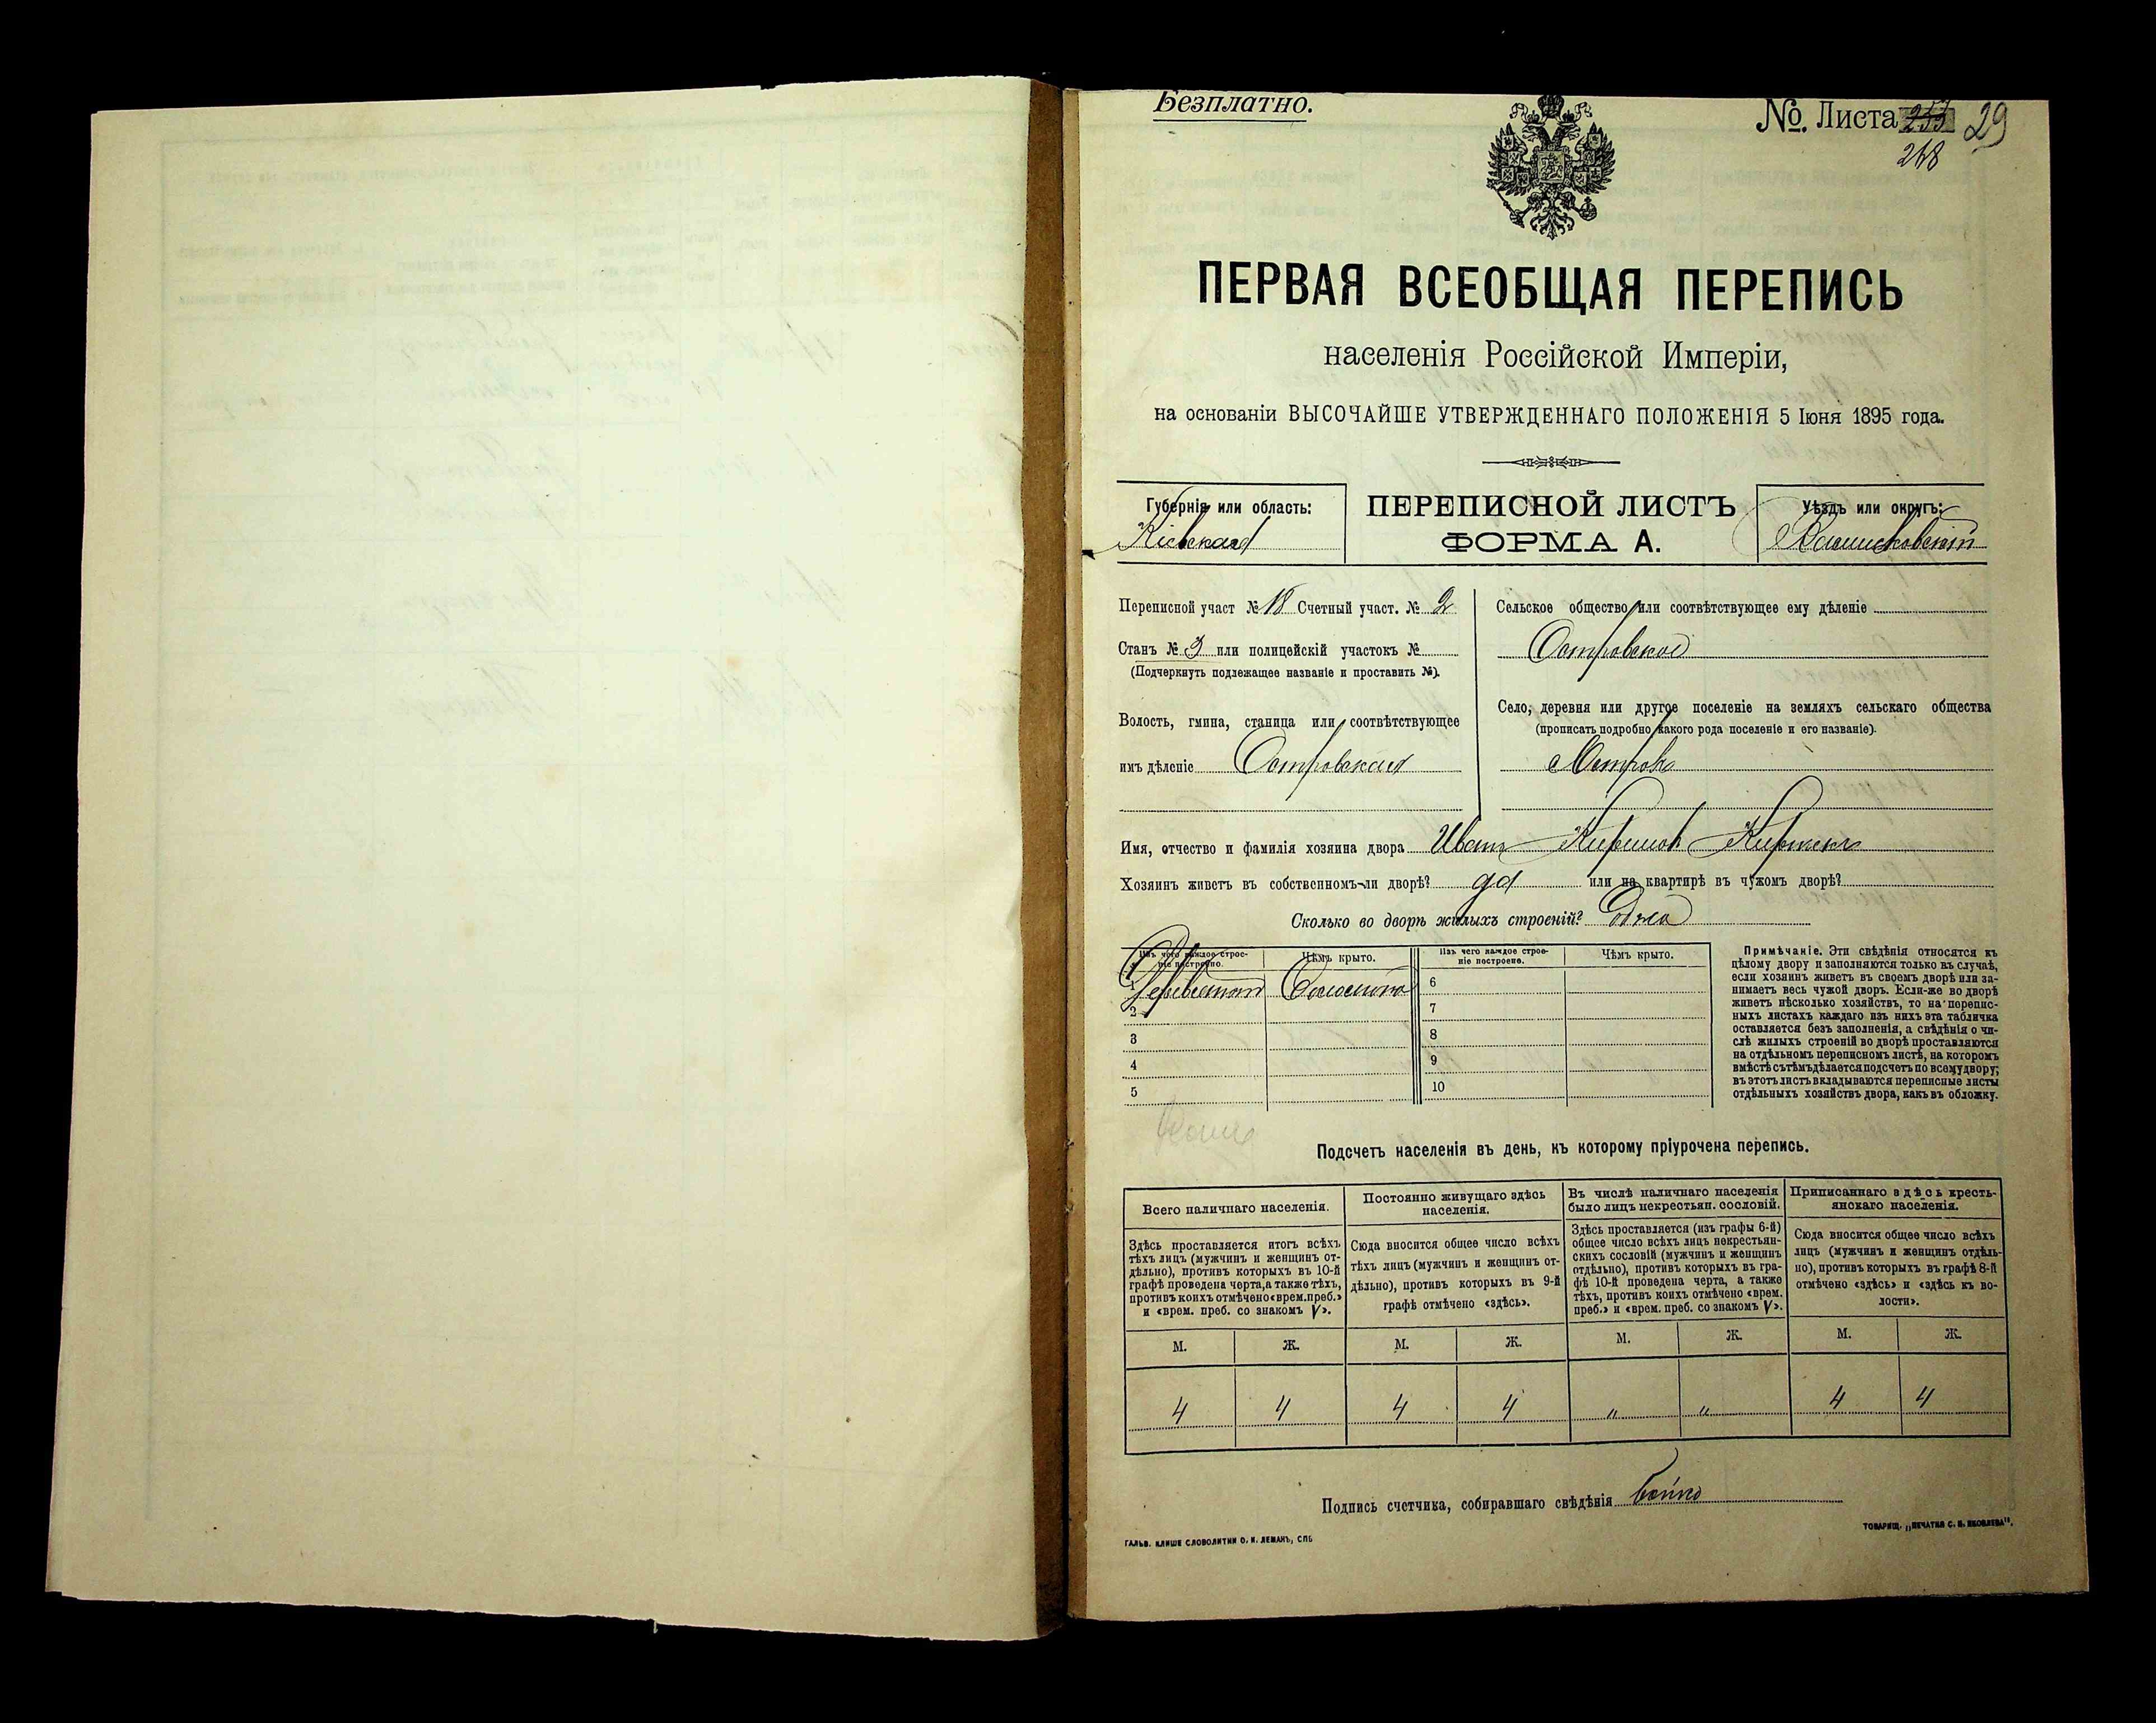 Безплатно.
№. Листа 253 29
268
ПЕРВАЯ ВСЕОБЩАЯ ПЕРЕПИСЬ
населенія Россійской Имперіи,
на основаніи ВЫСОЧАЙШЕ УТВЕРЖДЕННАГО ПОЛОЖЕНІЯ 5 Іюня 1895 года.
Губернія или область:
Кіевская
ПЕРЕПИСНОЙ ЛИСТЪ
ФОРМА А.
Уѣздъ или округъ:
Васильковскій
Переписной участ № 18 Счетный участ. № 2
Станъ № 3 или полицейскій участокъ №
(Подчеркнуть подлежащее названіе и проставить №).
Волость, гмина, станица или соотвѣтствующее
имъ дѣленіе Островская
Сельское общество или соотвѣтствующее ему дѣленіе
Островское
Село, деревня или другое поселеніе на земляхъ сельскаго общества
(прописать подробно какого рода поселеніе и его названіе).
с Островъ
Имя, отчество и фамилія хозяина двора Иванъ Кириловъ
Хозяинъ живетъ въ собственномъ-ли дворѣ? да или на квартирѣ въ чужомъ дворѣ?
Сколько во дворѣ жилыхъ строеній? Одна
Изъ чего каждое строе-
ніе построено.
Чѣмъ крыто.
Изъ чего каждое строе-
ніе построено.
Чѣмъ крыто.
1 Соломою 6
2 7
3 8
4 9
5 10
Примѣчаніе. Эти свѣдѣнія относятся къ
цѣлому двору и заполняются только въ случаѣ,
если хозяинъ живетъ въ своемъ дворѣ или за-
нимаетъ весь чужой дворъ. Если-же во дворѣ
живетъ нѣсколько хозяйствъ, то на перепис-
ныхъ листахъ каждаго изъ нихъ эта табличка
оставляется безъ заполненія, а свѣдѣнія о чи-
слѣ жилыхъ строеній во дворѣ проставляются
на отдѣльномъ переписномъ листѣ, на которомъ
вмѣстѣ съ тѣмъ дѣлается подсчетъ по всему двору;
въ этотъ листъ вкладываются переписные листы
отдѣльныхъ хозяйствъ двора, какъ въ обложку.
Подсчетъ населенія въ день, къ которому пріурочена перепись.
Всего наличнаго населенія.
Здѣсь проставляется итогъ всѣхъ
тѣхъ лицъ (мужчинъ и женщинъ от-
дѣльно), противъ которыхъ въ 10-й
графѣ проведена черта, а также тѣхъ,
противъ коихъ отмѣчено «врем. преб.»
и «врем. преб. со знакомъ V».
Постоянно живущаго здѣсь
населенія.
Сюда вносится общее число всѣхъ
тѣхъ лицъ (мужчинъ и женщинъ от-
дѣльно), противъ которыхъ въ 9-й
графѣ отмѣчено «здѣсь».
Въ числѣ наличнаго населенія
было лицъ некрестьян. сословій.
Здѣсь проставляется (изъ графы 6-й)
общее число всѣхъ лицъ некрестьян-
скихъ сословій (мужчинъ и женщинъ
отдѣльно), противъ которыхъ въ гра-
фѣ 10-й проведена черта, а также
тѣхъ, противъ коихъ отмѣчено «врем.
преб.» и «врем. преб. со знакомъ V».
Приписаннаго здѣсь кресть-
янскаго населенія.
Сюда вносится общее число всѣхъ
лицъ (мужчинъ и женщинъ отдѣль-
но), противъ которыхъ въ графѣ 8-й
отмѣчено «здѣсь» и «здѣсь къ во-
лости».
М. Ж. М. Ж. М. Ж. М. Ж.
4 4 4 4 " " 4 4
Подпись счетчика, собиравшаго свѣдѣнія Бойко
ГАЛЬВ. КЛИШЕ СЛОВОЛИТНИ О. И. ЛЕМАНЪ, СПБ
ТОВАРИЩ. „ПЕЧАТНЯ С. П. ЯКОВЛЕВА".